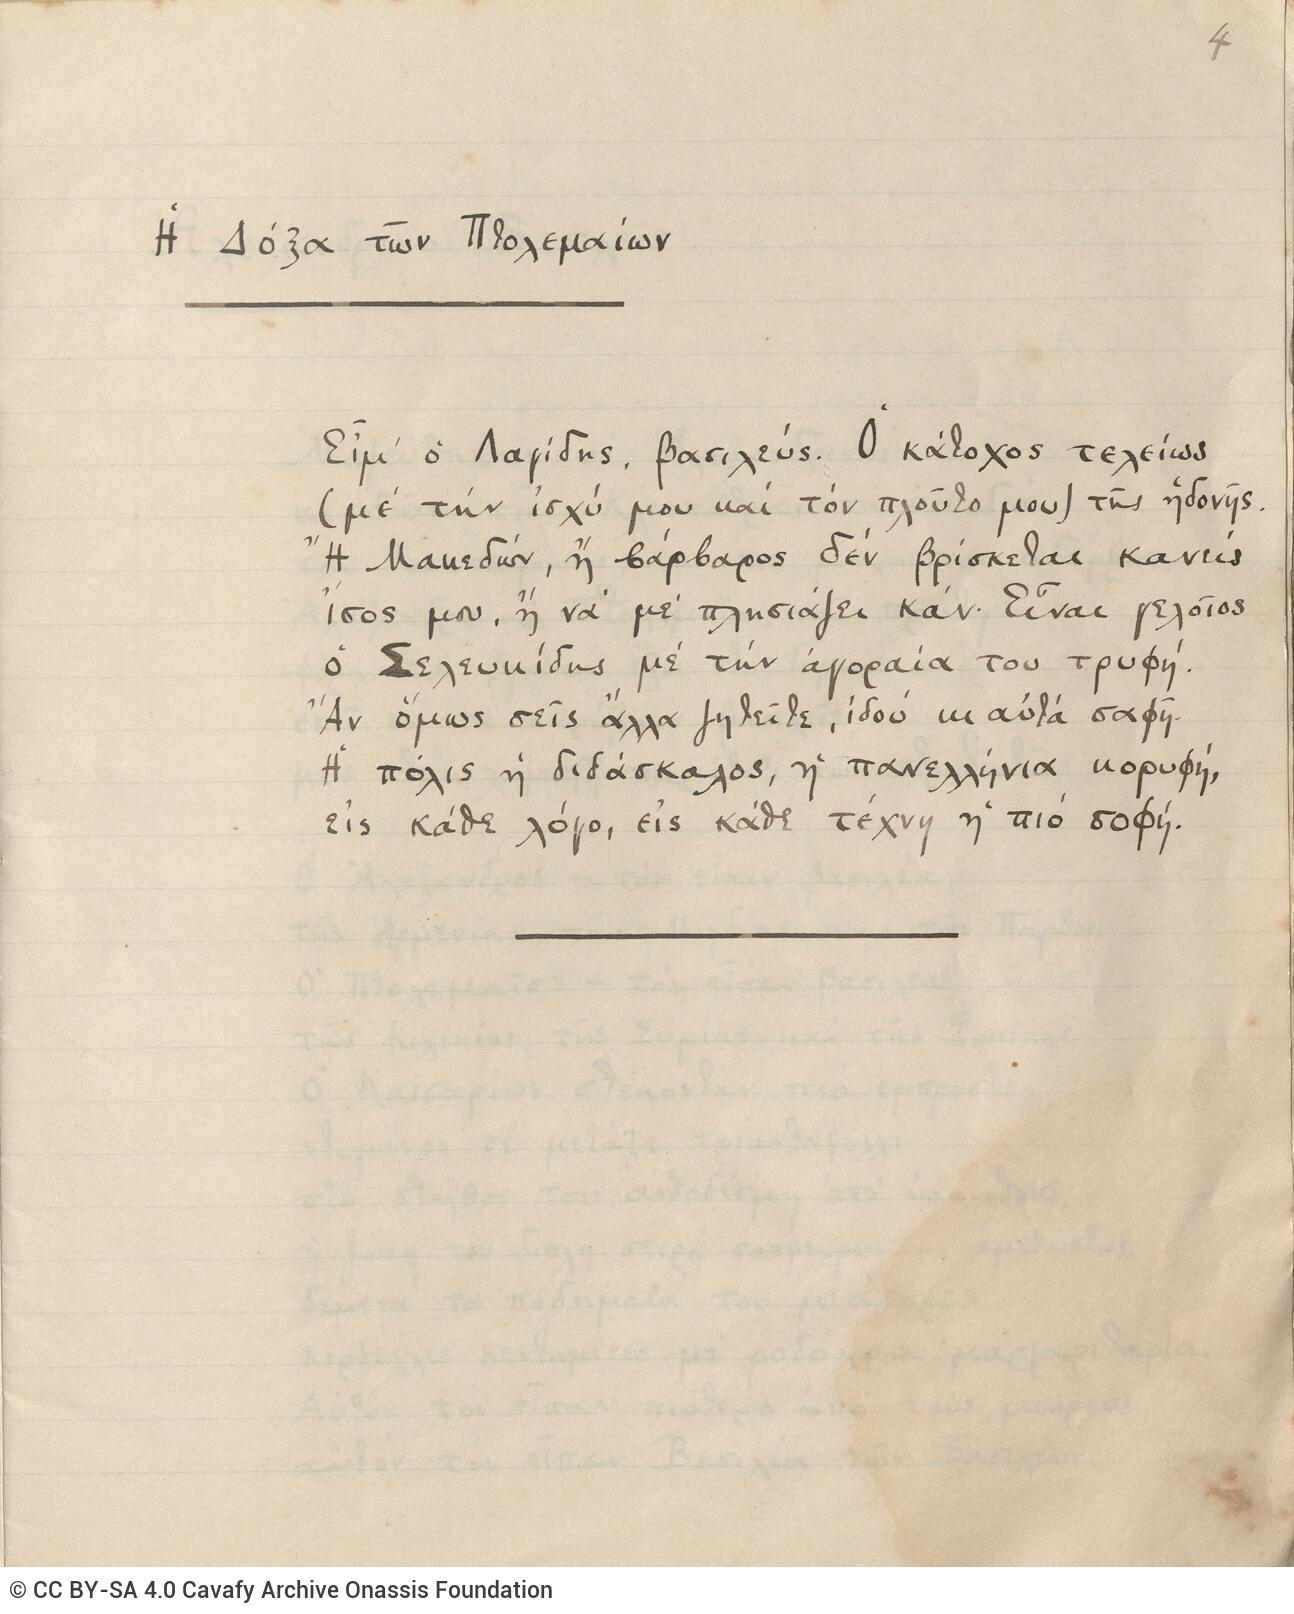 4
Ἡ Δόξα τῶν Πτολεμαίων
Εἶμ' ὁ Λαγίδης, βασιλεύς. Ὁ κάτοχος τελείως
(μὲ τὴν ἰσχύ μου καὶ τὸν πλοῦτο μου) τῆς ἡδονῆς.
Ἢ Μακεδών, ἢ βάρβαρος δὲν βρίσκεται κανεὶς
ἴσος μου, ἢ νὰ μὲ πλησιάζει κάν. Εἶναι γελοῖος
ὁ Σελευκίδης μὲ τὴν ἀγοραία του τρυφή.
Ἂν ὅμως σεῖς ἄλλα ζητεῖτε, ἰδοὺ κι αὐτὰ σαφῆ.
Ἡ πόλις ἡ διδάσκαλος, ἡ πανελλήνια κορυφή,
εἰς κάθε λόγο, εἰς κάθε τέχνη ἡ πιὸ σοφή.
© CC BY-SA 4.0 Cavafy Archive Onassis Foundation